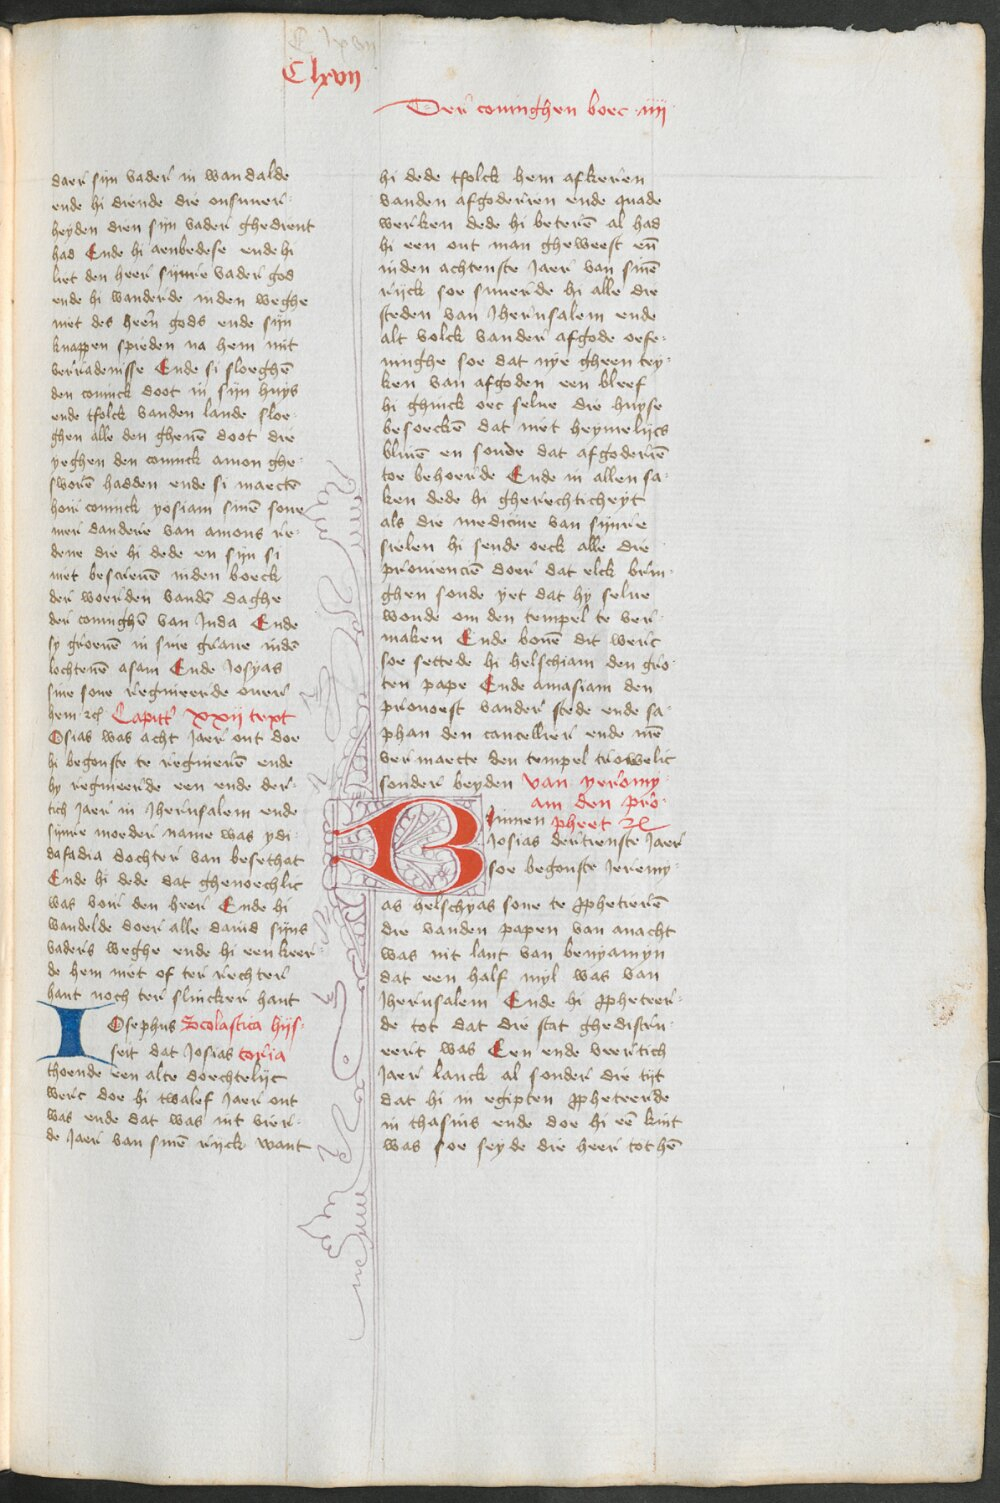 Clxvij
Der coninghen boec iiij
daer sijn vader in wandalde
ende hi diende die onsuuer-
heyden dien sijn vader ghedient
had Ende hi aenbedese ende hi
liet den heer sijnre vader god
ende hi wanderde inden weghe
niet des heeren gods ende sijn
knapen spieden na hem mit
verradenisse Ende si sloeghē
den coninck doot in sijn huys
ende tfolck vanden lande sloe-
ghen alle den ghenē doot die
yeghen den coninck amon ghe-
sworē hadden ende si maectē
hoir coninck yosiam sinē sone
mer dandere van amons re-
dene die hi dede en sijn si
niet bescreuē inden boeck
der woerden vandē daghe
der coninghē van Juda Ende
sy groeuē in sine graue indē
lochtenē asam Ende Josyas
sine sone regneerde ouer
hem etc̄ Capittel xxij text
Osias was acht Jaer out doe
hi begonste te regnierē ende
hy regneerde een ende der-
tich Jaer in Jherusalem ende
sijnre moeder name was ydi-
dafadia dochter van besethat
Ende hi dede dat ghenoechlic
was voir den heer Ende hi
wandelde doer alle dauid sijns
vaders weghe ende hi een keer-
de hem niet of ter rechter
hant noch ter slincker hant
Iosephus Scolastica hijs-
seit dat Josias toria
thoende een alte doechtelijc
werc doe hi twalef Jaer out
was ende dat was int vier-
de Jaer van sinē rijck want
hi dede tfolck hem afkeren
vanden afgoderien ende quade
werken dede hi beterē al had
hi een out man gheweest eñ
inden achtenste Jaer van sinē
rijck soe suuerde hi alle die
steden van Jherusalem ende
alt volck vander afgode oefe-
ninghe soe dat nye gheen tey-
ken van afgoden een bleef
hi ghinck oec selue die huyse
besoeckē dat niet heymelijcs
bliuē en soude dat afgoderiē
toe behoerde Ende in allen sa-
ken dede hi gherechticheyt
als die medicine van sijnre
sielen hi sende oeck alle die
prouenciē doer dat elck brin-
ghen soude yet dat hy selue
woude om den tempel te ver-
maken Ende bouē dit werc
soe settede hi helschiam den gro-
ten pape Ende amasiam den
prouoest vander stede ende sa-
phan den cancellier ende mē
vermaecte den tempel trowelic
sonder beyden van yeromy-
am den pro-
Binnen pheet etc̄
Josias dertienste Jaer
soe begonste Jeremy-
as helschyas sone te prophetierē
die vanden papen van anacht
was uit lant van benyamyn
dat een half myl was van
Jherusalem Ende hi propheteer-
de tot dat die stat ghedistru-
eert was Een ende veertich
Jaer lanck al sonder die tijt
dat hi in egipten propheteerde
in thafnis ende doe hi eē kint
was soe seyde die heer tot hē